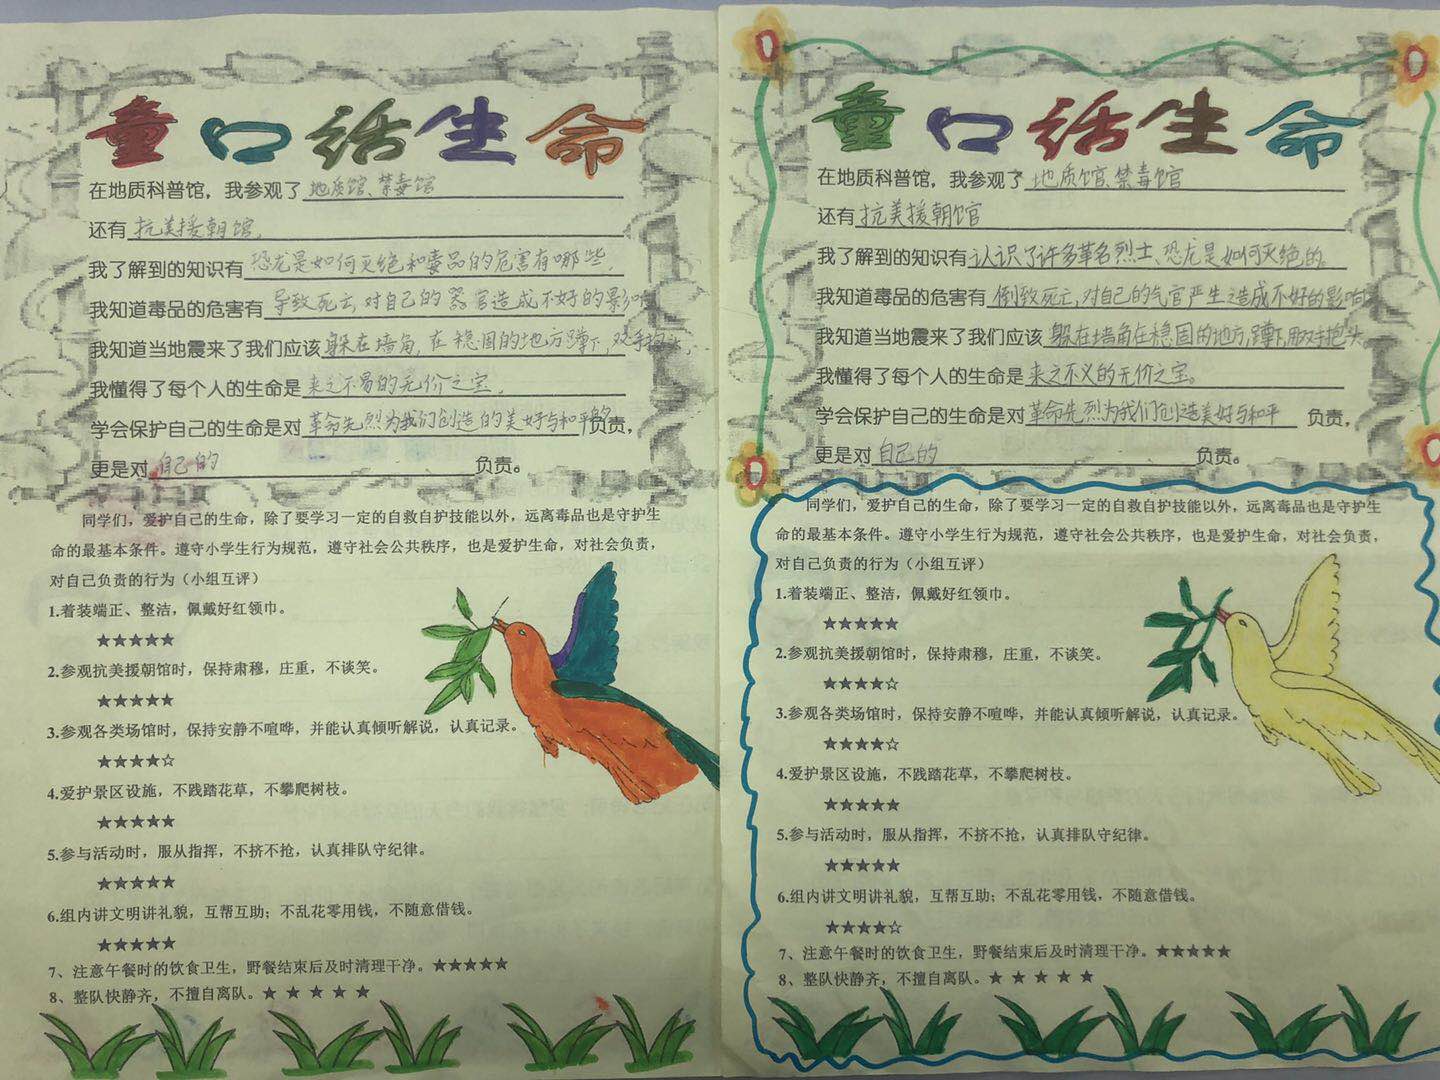 童口话生命
在地质科普馆，我参观了地质馆、禁毒馆
还有抗美援朝馆.
我了解到的知识有恐龙是如何灭绝和毒品的危害有哪些.
我知道毒品的危害有导致死亡,对自己的器官造成不好的影响
我知道当地震来了我们应该躲在墙角,在稳固的地方蹲下,双手抱头.
我懂得了每个人的生命是来之不易的无价之宝.
学会保护自己的生命是对革命先烈为我们创造的美好与和平的负责，
更是对自己的负责。
同学们，爱护自己的生命，除了要学习一定的自救自护技能以外，远离毒品也是守护生
命的最基本条件。遵守小学生行为规范，遵守社会公共秩序，也是爱护生命，对社会负责，
对自己负责的行为（小组互评）
1.着装端正、整洁，佩戴好红领巾。
★★★★★
2.参观抗美援朝馆时，保持肃穆，庄重，不谈笑。
★★★★★
3.参观各类场馆时，保持安静不喧哗，并能认真倾听解说，认真记录。
★★★★☆
4.爱护景区设施，不践踏花草，不攀爬树枝。
★★★★★
5.参与活动时，服从指挥，不挤不抢，认真排队守纪律。
★★★★★
6.组内讲文明讲礼貌，互帮互助；不乱花零用钱，不随意借钱。
★★★★★
7、注意午餐时的饮食卫生，野餐结束后及时清理干净。★★★★★
8、整队快静齐，不擅自离队。★ ★ ★ ★ ★
童口话生命
在地质科普馆，我参观了地质馆、禁毒馆
还有抗美援朝馆
我了解到的知识有认识了许多革名烈士、恐龙是如何灭绝的
我知道毒品的危害有倒致死亡,对自己的气官严生造成不好的影响
我知道当地震来了我们应该躲在墙角在稳固的地方,蹲下,用双手抱头.
我懂得了每个人的生命是来之不义的无价之宝。
学会保护自己的生命是对革命先烈为我们创造美好与和平 负责，
更是对自己的 负责。
同学们，爱护自己的生命，除了要学习一定的自救自护技能以外，远离毒品也是守护生
命的最基本条件。遵守小学生行为规范，遵守社会公共秩序，也是爱护生命，对社会负责，
对自己负责的行为（小组互评）
1.着装端正、整洁，佩戴好红领巾。
★★★★★
2.参观抗美援朝馆时，保持肃穆，庄重，不谈笑。
★★★★☆
3.参观各类场馆时，保持安静不喧哗，并能认真倾听解说，认真记录。
★★★★☆
4.爱护景区设施，不践踏花草，不攀爬树枝。
★★★★★
5.参与活动时，服从指挥，不挤不抢，认真排队守纪律。
★★★★★
6.组内讲文明讲礼貌，互帮互助；不乱花零用钱，不随意借钱。
★★★★☆
7、注意午餐时的饮食卫生，野餐结束后及时清理干净。★★★★★
8、整队快静齐，不擅自离队。★ ★ ★ ★ ★